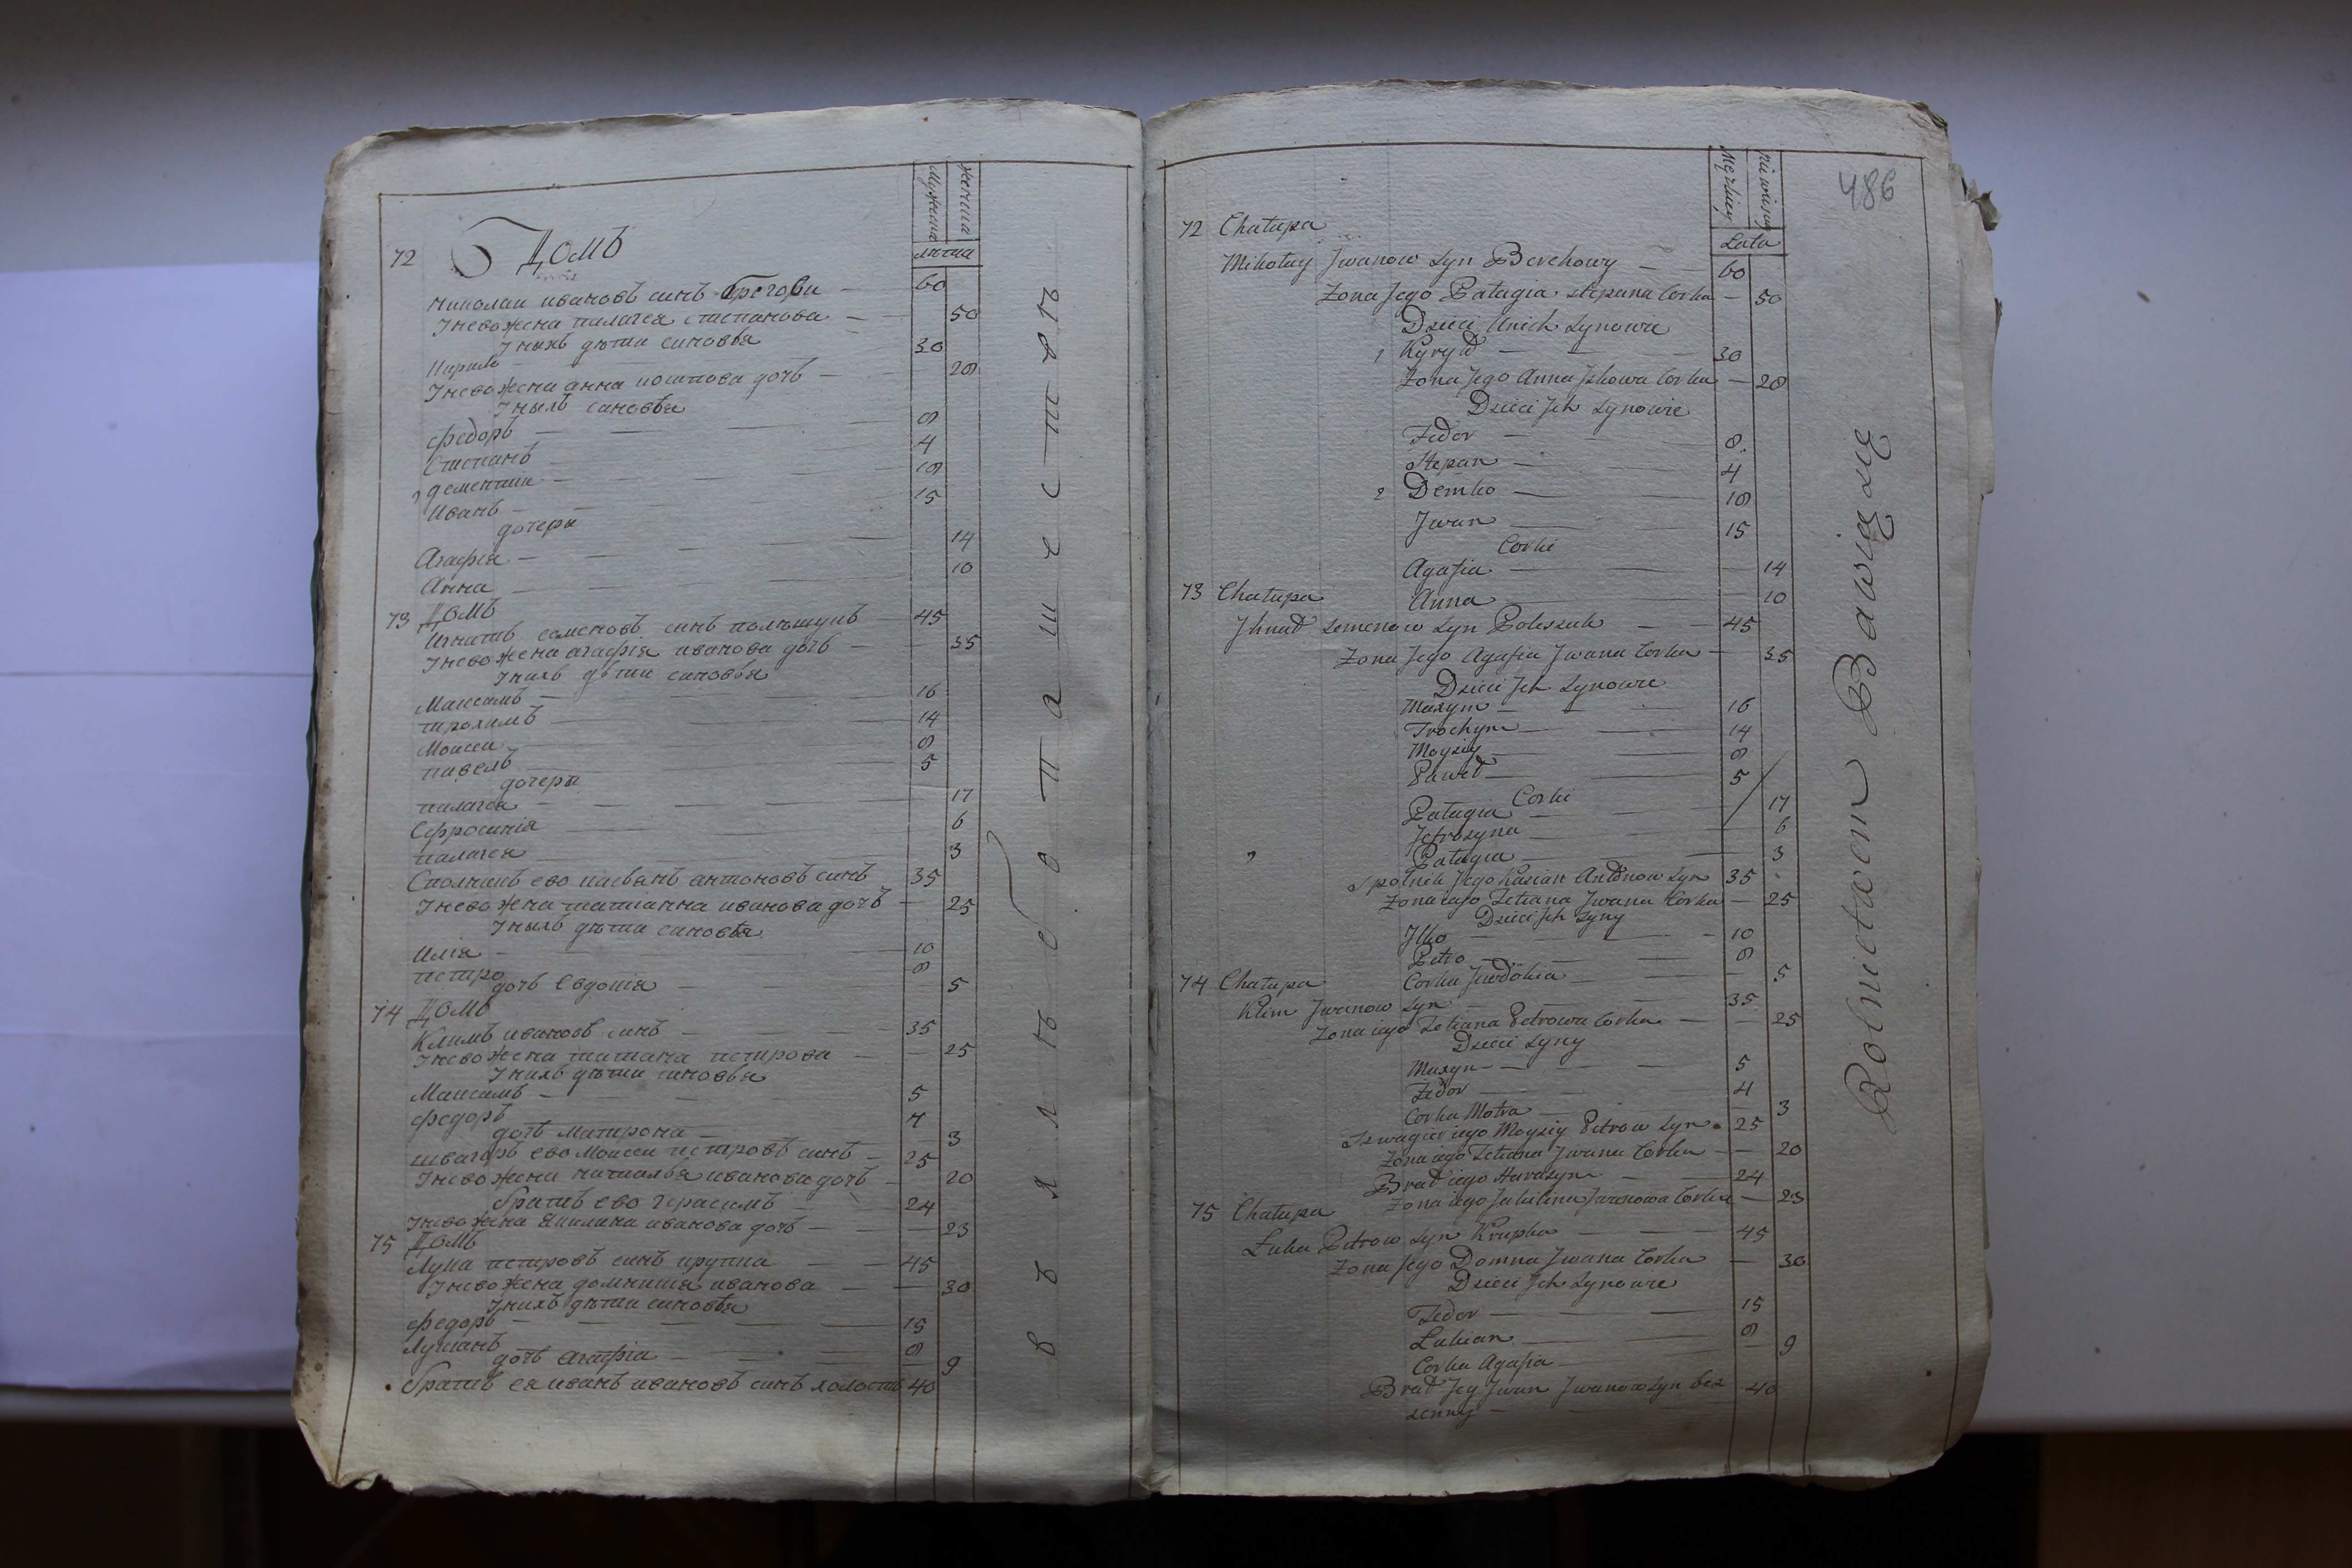 Мужеска
женска
лѣта
72 Домъ
Николаи ивановъ синъ Брегови — 60
Iнево жена палагея степанова — 50
Iнихъ дѣти синовья
Кирило — 30
Iнево жена анна иошпова дочъ — 20
Iнихъ синовья
федоръ — 8
Степанъ — 4
дементии — 18
иванъ — 15
дочери
Агафiя — 14
Анна — 10
73 Домъ
Игнатъ семеновъ синъ полѣшукъ — 45
Iнево жена агафiя иванова дочъ — 35
Iнихъ дѣти синовья
Максимъ — 16
трохимъ — 14
Моисеи — 8
павелъ — 5
дочери
палагея — 17
Ефросинiя — 6
палагея — 3
Сполникъ ево касъянъ антоновъ синъ 35
Iнево жена татианна иванова дочъ — 25
Iнихъ дѣти синовья
илiя — 10
петро — 8
дочъ Евдокiя — 5
74 Домъ
Климъ ивановъ синъ — 35
Iнево жена татиана петрова — 25
Iнихъ дѣти синовья
Максимъ — 5
федоръ 4
дочъ Матрона — 3
швагеръ ево Моисеи петровъ синъ — 25
Iнево жена наталья иванова дочъ — 20
братъ ево герасимъ — 24
Iнево жена Якилина иванова дочъ — 23
75 Домъ
Лука петровъ синъ крупка — 45
Iнево жена домникия иванова — 30
Iнихъ дѣти синовья
федоръ — 15
Лукианъ 8
дочъ агафiя — 9
братъ ея иванъ ивановъ синъ холостъ 40
в хлѣбопашествѣ
486
Lata
72 Chałupa
Mikołay Jwanow Syn Berehowy — 60
Zona Jego Pałagia Stepana Corka — 50
Dzieci Unich Synowie
1 Kyryło — 30
Zona Jego Anna Jskowa Corka — 28
Dzieci Jch Synowie
Fedor — 8
Stepan — 4
2 Demko — 18
Jwan — 15
Corki
Agafia — 14
73 Chałupa
Anna — 10
Jhnat Semenow Syn Poleszuk — 45
Zona Jego Agafia Jwana Corka — 35
Dzieci Jch Synowie
Maxym — 16
Trochym — 14
Moysiy — 8
Paweł — 5
Corki
Pałagia — 17
Jefrosyna — 6
Pałagia — 3
Spolnik Jego Kasian Antonow Syn 35
Zona iego Tetiana Jwana Corka — 25
Dzieci Jch Syny
Jlko — 10
Petro — 8
Corka Juwdokia — 5
74 Chałupa
Klim Jwanow Syn — 35
Zona iego Tetiana Petrowa Corka — 25
Dzieci Syny
Maxym — 5
Fedor — 4
Corka Motra — 3
Szwagier iego Moysiy Petrow Syn 25
Zona iego Tetiana Jwana Corka — 20
Brat iego Harasym — 24
Zona iego Jakilina Jwanowa Corka — 23
75 Chałupa
Łuka Petrow Syn Krupka — 45
Zona Jego Domna Jwana Corka — 30
Dzieci Jch Synowie
Fedor — 15
Łukian — 8
Corka Agafia — 9
Brat Jey Jwan Jwanow Syn bez 40
zenny —
Rolnictwem Bawią się